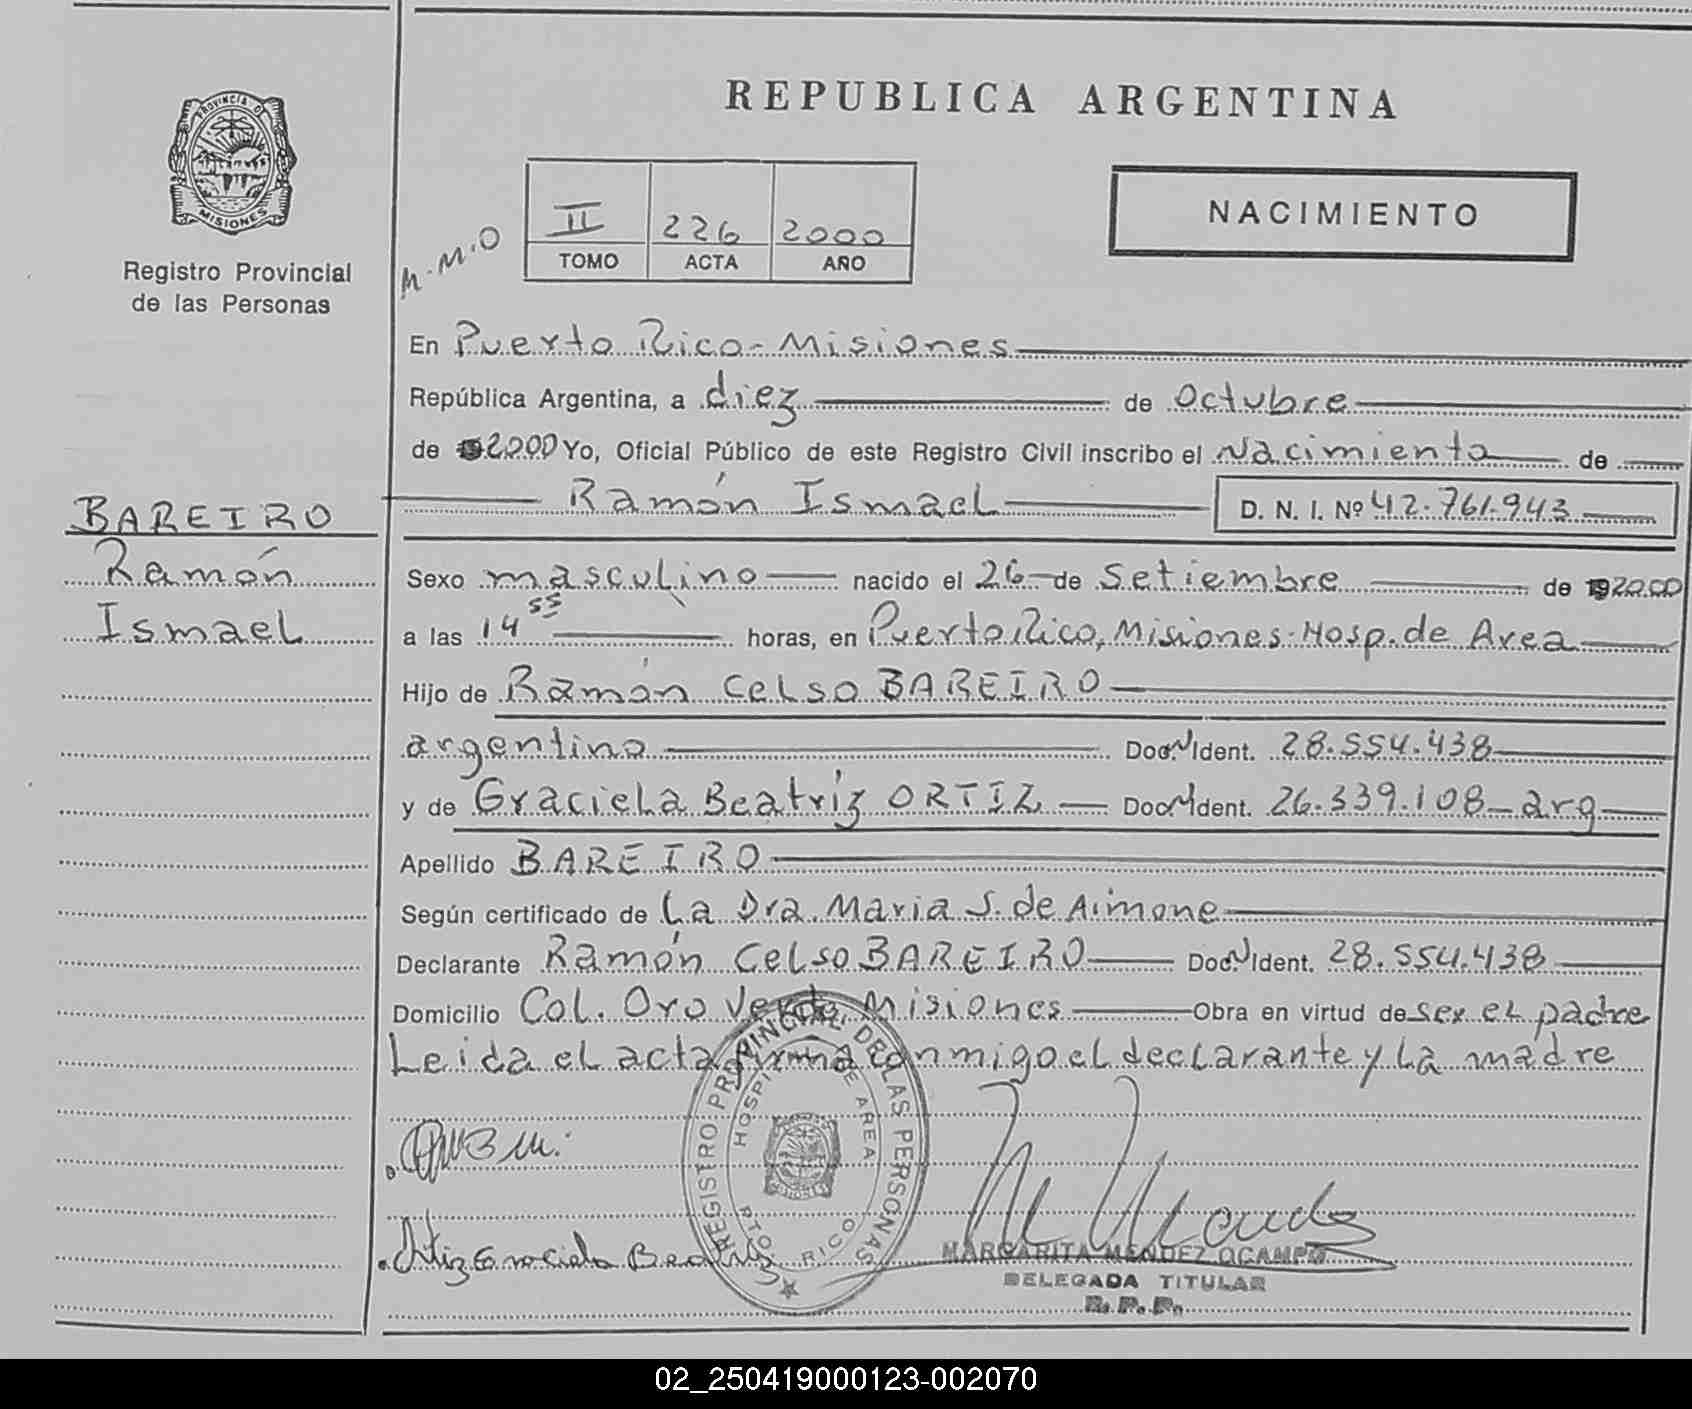 REPUBLICA ARGENTINA
PROVINCIA D
MISIONES
Registro Provincial
de las Personas
NACIMIENTO
II 226 2000
TOMO ACTA AÑO
M.M.O
En Puerto Rico - Misiones
República Argentina, a diez de Octubre
de 2000 Yo, Oficial Público de este Registro Civil inscribo el Nacimiento de
Ramón Ismael D. N. I. Nº 42.761.943
BAREIRO
Ramón
Ismael
Sexo masculino nacido el 26 de Setiembre de 2000
a las 14 55 horas, en Puerto Rico, Misiones. Hosp. de Area
Hijo de Ramón Celso BAREIRO
argentino Doc. N Ident. 28.554.438
y de Graciela Beatriz ORTIZ Doc. N Ident. 26.339.108 - arg
Apellido BAREIRO
Según certificado de La Dra. Maria S. de Aimone
Declarante Ramón Celso BAREIRO Doc. N Ident. 28.554.438
Domicilio Col. Oro Verde, Misiones Obra en virtud de ser el padre
Leida el acta firma conmigo el declarante y La madre
REGISTRO PROVINCIAL DE LAS PERSONAS
HOSPITAL DE AREA
PTO. RICO
MISIONES
Ortiz Graciela Beatriz
MARGARITA MENDEZ OCAMPO
DELEGADA TITULAR
R. P. P.
02_250419000123-002070